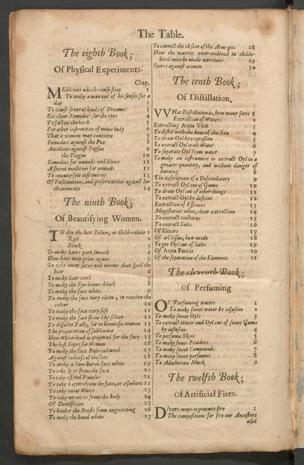 The Table.
The eighth Book;
Of Physical Experiments.
Chap.
Medicines which cause sleep 1
To make a man out of his senses for a
day 2
To cause several kinds of Dreams 3
Excellent Remedies for the eyes 4
To fasten the teeth 5
For other infirmities of mans body 6
That a woman may conceive 7
Remedies against the Pox 8
Antidotes against Poyson 9
the Plague 10
Remedies for wounds and blows 11
A secret medicine for wounds 12
To counterfeit infirmities 13
Of Fascination, and preservatives against Inchantments 14
The ninth Book;
Of Beautifying Women.
To dye the hair Yellow, or Gold-colour 1
Red 2
Black, 3
To make hairs part smooth 4
How hair may grow again 5
To take away sores and worms that spoil the
hair 6
To make hair curl 7
To make the Eye-brows black 8
To make the face white 9
To make the face very clean, to receive the
colour 10
To make the face very soft 11
To make the face shine like silver 12
To dissolve Talk, for to beautifie women 13
The preparation of Sublimate 14
How White-lead is prepared for the face 15
The best Sopes for Women 16
To make the face Rose-coloured 17
Against redness of the face 18
To make a Sun-burnt face white 19
To take spots from the face 20
To take off red Pimples 21
To take Tetters from the face, or elsewhere 22
To take away Warts 23
To take wrinckles from the body 24
Of Dentifrices 25
To hinder the Breasts from augmenting 26
To make the hand white 27
To correct the ill sent of the Arm-pits 28
How the matrix over-widened in child-
birth may be made narrower 29
Sports against women 30
The tenth Book;
Of Distillation,
What Distillation is, how many sorts 1
Extraction of Waters 2
Extracting Aqua Vitæ 3
To distil with the heat of the Sun 4
To draw Oyl by expression 5
To extract Oyl with Water 6
To separate Oyl from water 7
To make an instrument to extract Oyl in a
greater quantity, and without danger of
burning 8
The description of a Descendatory 9
To extract Oyl out of Gums 10
To draw Oyl out of other things 11
To extract Oyl by descent 12
Extraction of Essences 13
Magisteries what, their extraction 14
To extract tinctures 15
To extract Salts 16
Of Elixirs 17
Of a Clissus, how made 18
To get Oyl out of Salts 19
Of Aqua Fortis 20
Of the separation of the Elements 21
The eleventh Book;
Of Perfuming
Of Perfuming waters 1
To make sweet water by infusion 2
To make sweet Oyls 3
To extract Water and Oyl out of sweet Gums
by infusion 4
To perfume Skins 5
To make sweet Powders 6
To make sweet Compounds 7
To make sweet perfumes 8
To Adulterate Musk 9
The twelfth Book;
Of Artificial Fires.
Divers ways to procure fire 1
The compositions for fire our Ancestors
used